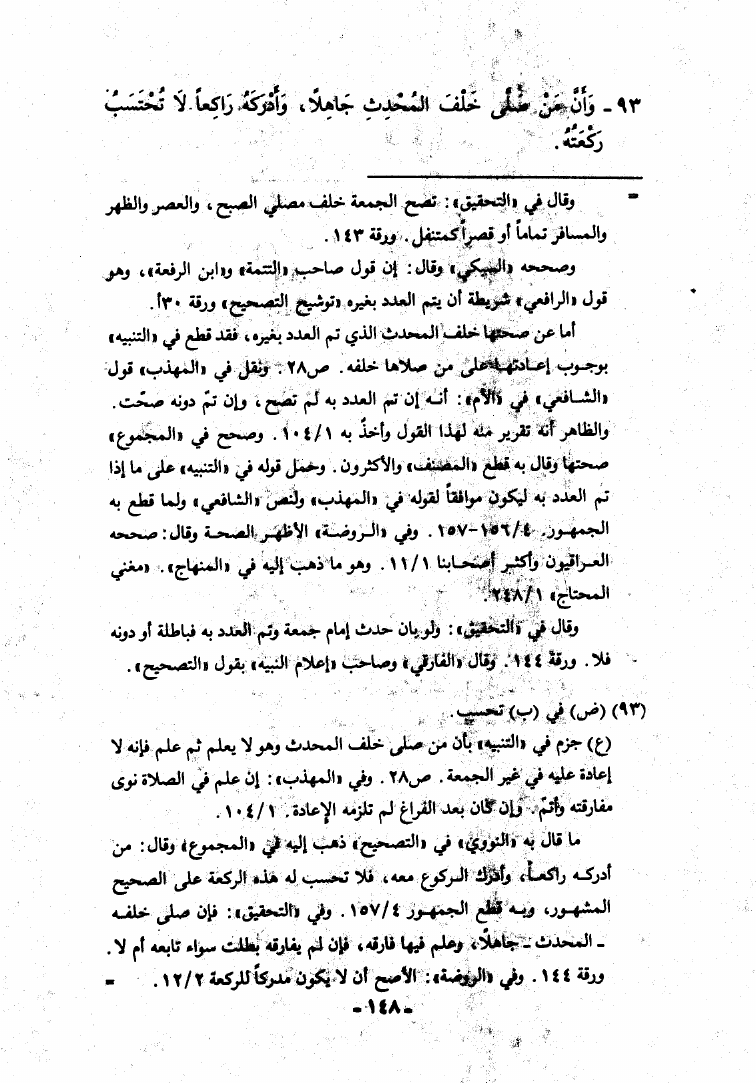 ٩٣ ـ وَأَنَّ مَنْ صَلَّى خَلْفَ المُحْدِثِ جَاهِلًا، وَأَدْرَكَهُ رَاكِعاً لَا تُحْتَسَبُ
رَكْعَتُهُ.
= وقال في «التحقيق»: تصح الجمعة خلف مصلي الصبح، والعصر والظهر
والمسافر تماماً أو قصراً كمتنفل. ورقة ١٤٣.
وصححه «السبكي» وقال: إن قول صاحب «التتمة» و«ابن الرفعة»، وهو
قول «الرافعي» شريطة أن يتم العدد بغيره «توشيح التصحيح» ورقة ٣٠أ.
أما عن صحتها خلف المحدث الذي تم العدد بغيره، فقد قطع في «التنبيه»
بوجوب إعادتها على من صلاها خلفه. ص٢٨. ونقل في «المهذب» قول
«الشافعي» في «الأم»: أنه إن تم العدد به لم تصح، وإن تمّ دونه صحّت.
والظاهر أنه تقرير منه لهذا القول وأخذٌ به ١٠٤/١. وصحح في «المجموع»
صحتها وقال به قطع «المصنف» والأكثرون. وحمل قوله في «التنبيه» على ما إذا
تم العدد به ليكون موافقاً لقوله في «المهذب» ولنص «الشافعي» ولما قطع به
الجمهور. ١٥٦/٤-١٥٧. وفي «الروضة» الأظهر الصحة وقال: صححه
العراقيون وأكثر أصحابنا ١١/١. وهو ما ذهب إليه في «المنهاج». «مغني
المحتاج» ٢٤٨/١.
وقال في «التحقيق»: ولو بان حدث إمام جمعة وتم العدد به فباطلة أو دونه
فلا. ورقة ١٤٤. وقال «الفارقي» وصاحب «إعلام النبيه» بقول «التصحيح».
(٩٣) (ض) في (ب) تحسب.
(ع) جزم في «التنبيه» بأن من صلى خلف المحدث وهو لا يعلم ثم علم فإنه لا
إعادة عليه في غير الجمعة. ص٢٨. وفي «المهذب»: إن علم في الصلاة نوى
مفارقته وأتمّ. وإن كان بعد الفراغ لم تلزمه الإعادة. ١٠٤/١.
ما قال به «النووي» في «التصحيح» ذهب إليه في «المجموع» وقال: من
أدركه راكعاً، وأدرك الركوع معه، فلا تحسب له هذه الركعة على الصحيح
المشهور، وبه قطع الجمهور ١٥٧/٤. وفي «التحقيق»: فإن صلى خلفه
ـ المحدث ـ جاهلًا، وعلم فيها فارقه، فإن لم يفارقه بطلت سواء تابعه أم لا.
ورقة ١٤٤. وفي «الروضة»: الأصح أن لا يكون مدركاً للركعة ١٢/٢. =
ـ ١٤٨ ـ